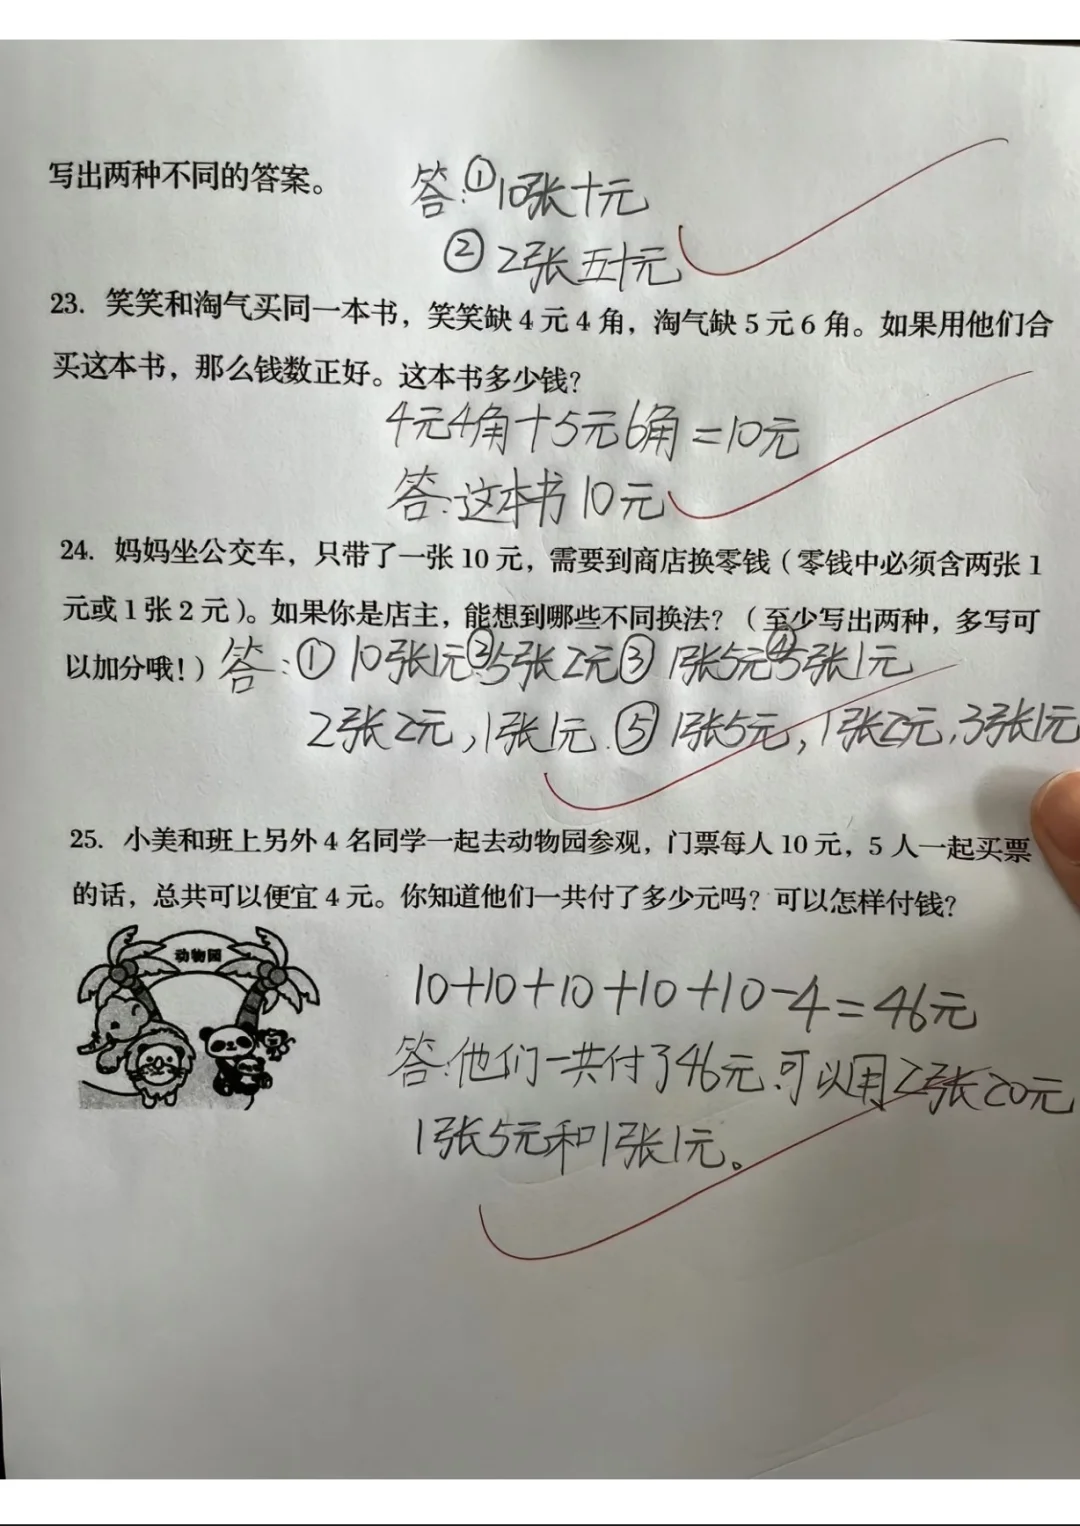 写出两种不同的答案。
答:①10张十元
②2张五十元
23. 笑笑和淘气买同一本书，笑笑缺4元4角，淘气缺5元6角。如果用他们合
买这本书，那么钱数正好。这本书多少钱？
4元4角+5元6角=10元
答:这本书10元
24. 妈妈坐公交车，只带了一张10元，需要到商店换零钱（零钱中必须含两张1
元或1张2元）。如果你是店主，能想到哪些不同换法？（至少写出两种，多写可
以加分哦！）答:①10张1元②5张2元③1张5元5张1元④
2张2元,1张1元.⑤1张5元,1张2元,3张1元
25. 小美和班上另外4名同学一起去动物园参观，门票每人10元，5人一起买票
的话，总共可以便宜4元。你知道他们一共付了多少元吗？可以怎样付钱？
动物园
10+10+10+10+10-4=46元
答:他们一共付了46元.可以用2张20元
1张5元和1张1元。